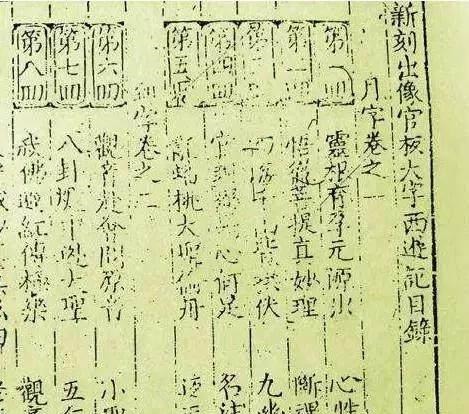 新刻出像官板大字西遊記目錄
月字卷之一
第一回 靈根育孕元源出 心性
第二回 悟徹菩提真妙理 斷魔
第三回 四海千山皆拱伏 九幽
第四回 官封 心何足 名注
第五回 亂蟠桃大聖偷丹
字卷之二
第六回 觀音赴會問原因 小聖
第七回 八卦爐中逃大聖 五行
第八回 我佛造經傳極樂 觀音